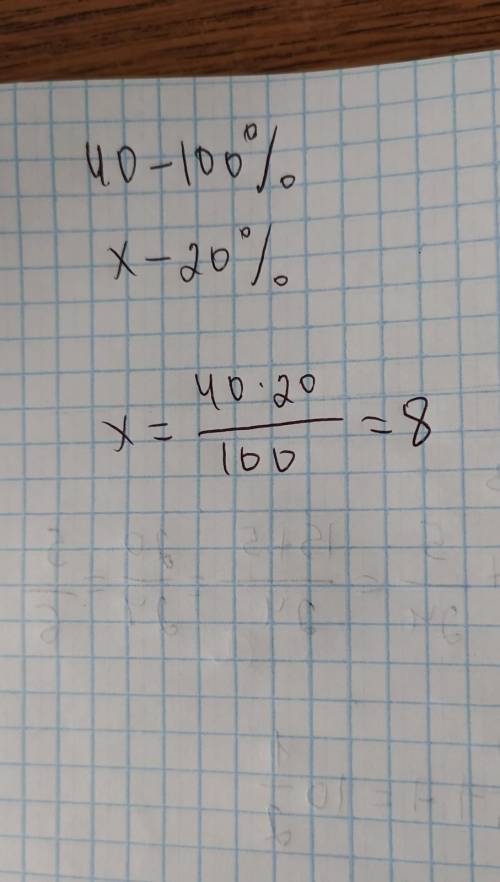 40 - 100%
x - 20%
x = \frac{40 · 20}{100} = 8